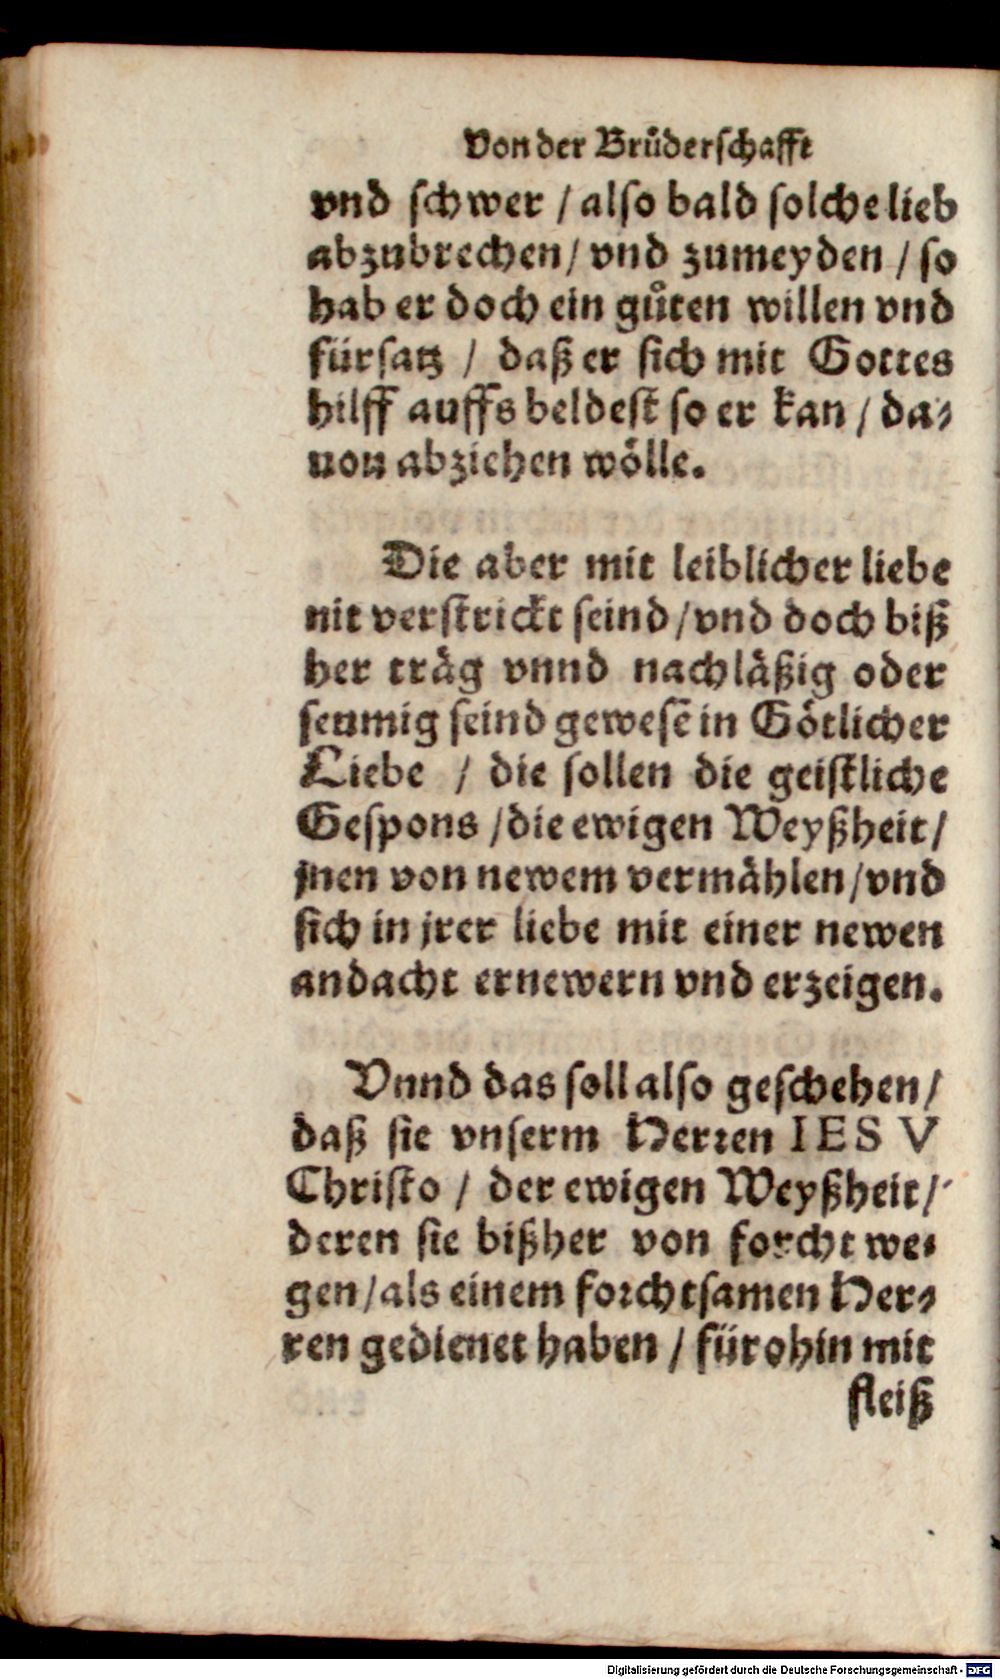 Von der Brůderschafft
vnd schwer / also bald solche lieb
abzubrechen / vnd zumeyden / so
hab er doch ein gůten willen vnd
fürsatz / daß er sich mit Gottes
hilff auffs beldest so er kan / da⸗
uon abziehen wölle.
Die aber mit leiblicher liebe
nit verstrickt seind / vnd doch biß
her träg vnnd nachläßig oder
seumig seind gewesē in Götlicher
Liebe / die sollen die geistliche
Gespons / die ewigen Weyßheit /
jnen von newem vermählen / vnd
sich in jrer liebe mit einer newen
andacht ernewern vnd erzeigen.
Vnnd das soll also geschehen /
daß sie vnserm Herren IESV
Christo / der ewigen Weyßheit /
deren sie bißher von forcht we⸗
gen / als einem forchtsamen Her⸗
ren gedienet haben / fürohin mit
fleiß
Digitalisierung gefördert durch die Deutsche Forschungsgemeinschaft - DFG